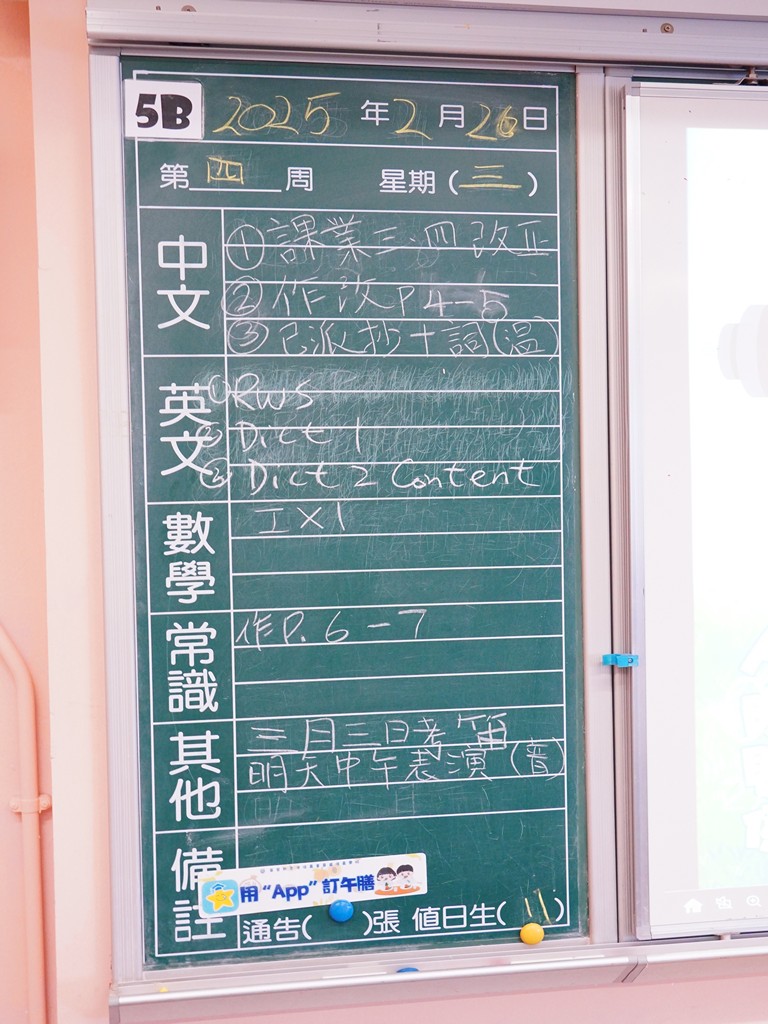 5B 2025年2月26日
第四周 星期(三)
中文
①課業三、四改正
②作改P4-5
③已派抄十詞(溫)
英文
①RWS
②Dict 1
③Dict 2 Content
數學
工×1
常識
作P.6-7
其他
三月三日考笛
明天中午表演(音)
備註
用“App”訂午膳
通告( )張 值日生(11)